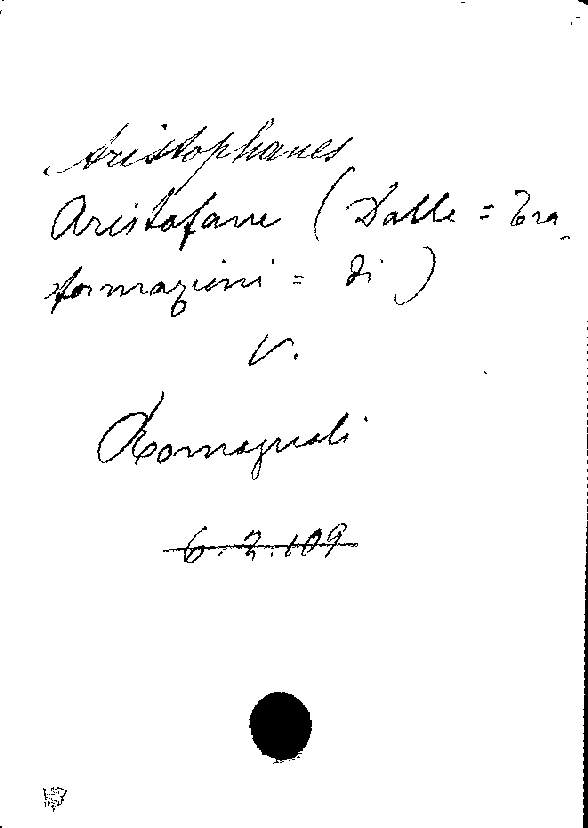 Aristophanes
Aristofane (Dalle = Tra-
sformazioni = di)
V.
Romagnoli
6.2.109